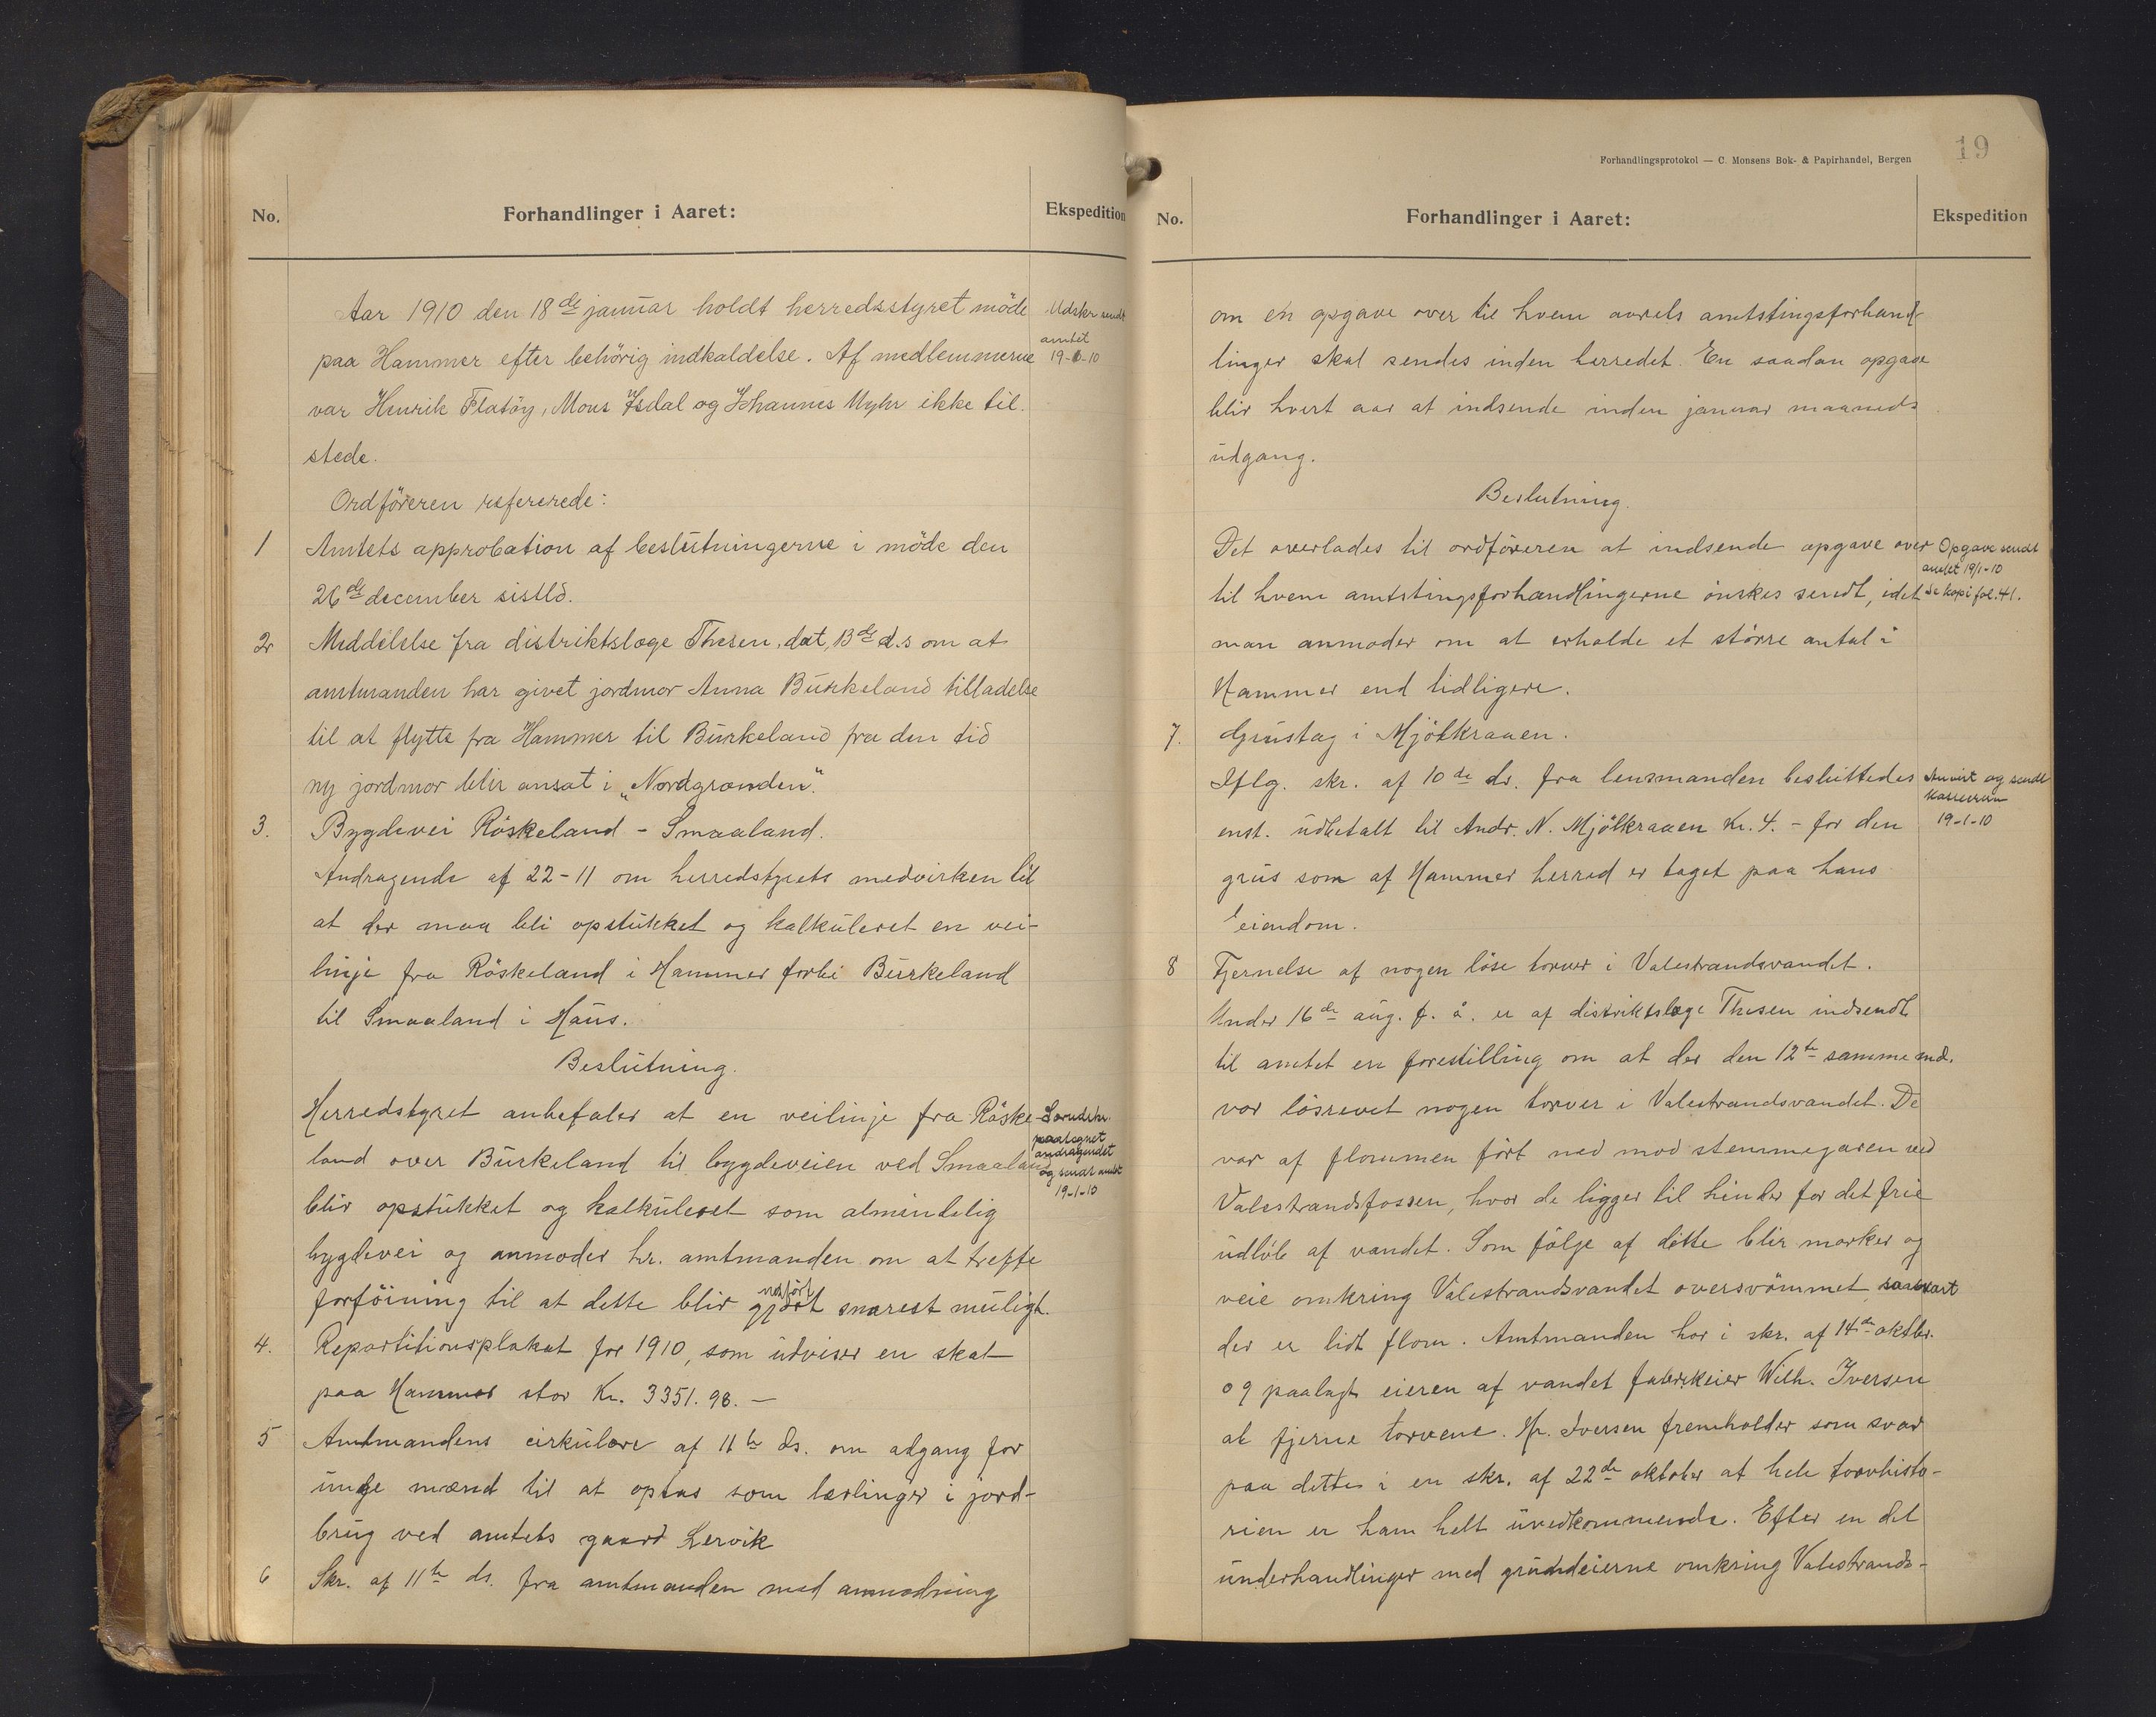 No.
Forhandlinger i Aaret:
Ekspedition
Aar 1910 den 18de januar holdt herredsstyret möde
paa Hammer efter behörig indkaldelse. Af medlemmerne
var Henrik Flatöy, Mons Isdal og Johannes Myhr ikke til
stede.
Udskr sendt
amtet
19-1-10
Ordföreren refererede:
1
Amtets approbation af beslutningerne i möde den
26de december sistld.
2
Meddelelse fra distriktslæge Thesen, dat, 13de d.s om at
amtmanden har givet jordmor Anna Burkeland tilladelse
til at flytte fra Hammer til Burkeland fra den tid
ny jordmor blir ansat i "Nordgranden".
3.
Bygdevei Röskeland - Smaaland.
Andragende af 22-11 om herredstyrets medvirken til
at der maa bli opstukket og kalkuleret en vei-
linje fra Röskeland i Hammer forbi Burkeland
til Smaaland i Haus.
Beslutning.
Herredstyret anbefaler at en veilinje fra Röske-
land over Burkeland til bygdeveien ved Smaaland
blir opstukket og kalkuleret som almindelig
bygdevei og anmoder hr. amtmanden om at treffe
forföining til at dette blir gjort udfört snarest muligt.
paategnet
andragendet
og sendt amtet
19-1-10
4.
Repartitionsplakat for 1910, som udviser en skat
paa Hammer stor Kr. 3351.98.-
5
Amtmandens cirkulære af 11te ds. om adgang for
unge mænd til at optas som lærlinger i jord-
brug ved amtets gaard Lervik
6
Skr. af 11te ds. fra amtmanden med anmodning
Forhandlingsprotokol — C. Monsens Bok- & Papirhandel, Bergen
19
No.
Forhandlinger i Aaret:
Ekspedition
om en opgave over til hvem aarets amtstingsforhand-
linger skal sendes inden herredet. En saadan opgave
blir hvert aar at indsende inden januar maaneds
udgang.
Beslutning.
Det overlades til ordföreren at indsende opgave over
til hvem amtstingsforhandlingerne önskes sendt, idet
man anmoder om at erholde et större antal i
Hammer end tidligere.
Opgave sendt
amtet 19/1-10
se kopi fol. 41.
7.
Grustag i Mjölkraaen.
Iflg. skr. af 10de ds. fra lensmanden besluttedes
enst. udbetalt til Andr. N. Mjölkraaen Kr. 4.- for den
grus som af Hammer herred er taget paa hans
eiendom.
Anvist og sendt
kassereren
19-1-10
8
Fjernelse af nogen löse torver i Valestrandsvandet.
Under 16de aug. f. å. er af distriktslæge Thesen indsendt
til amtet en forestilling om at der den 12te samme md.
var lösrevet nogen torver i Valestrandsvandet. De
var af flommen fört ned mod stemmegaren ved
Valestrandsfossen, hvor de ligger til hinder for det frie
udlöb af vandet. Som fölge af dette blir marker og
veie omkring Valestrandsvandet oversvömmet saasnart
der er lidt flom. Amtmanden har i skr. af 14de oktbr.
09 paalagt eieren af vandet fabrikeier Wilh. Iversen
at fjerne torvene. Hr. Iversen fremholder som svar
paa dette i en skr. af 22de oktober at hele torvhisto-
rien er ham helt uvedkommende. Efter en del
underhandlinger med grundeierne omkring Valestrands-